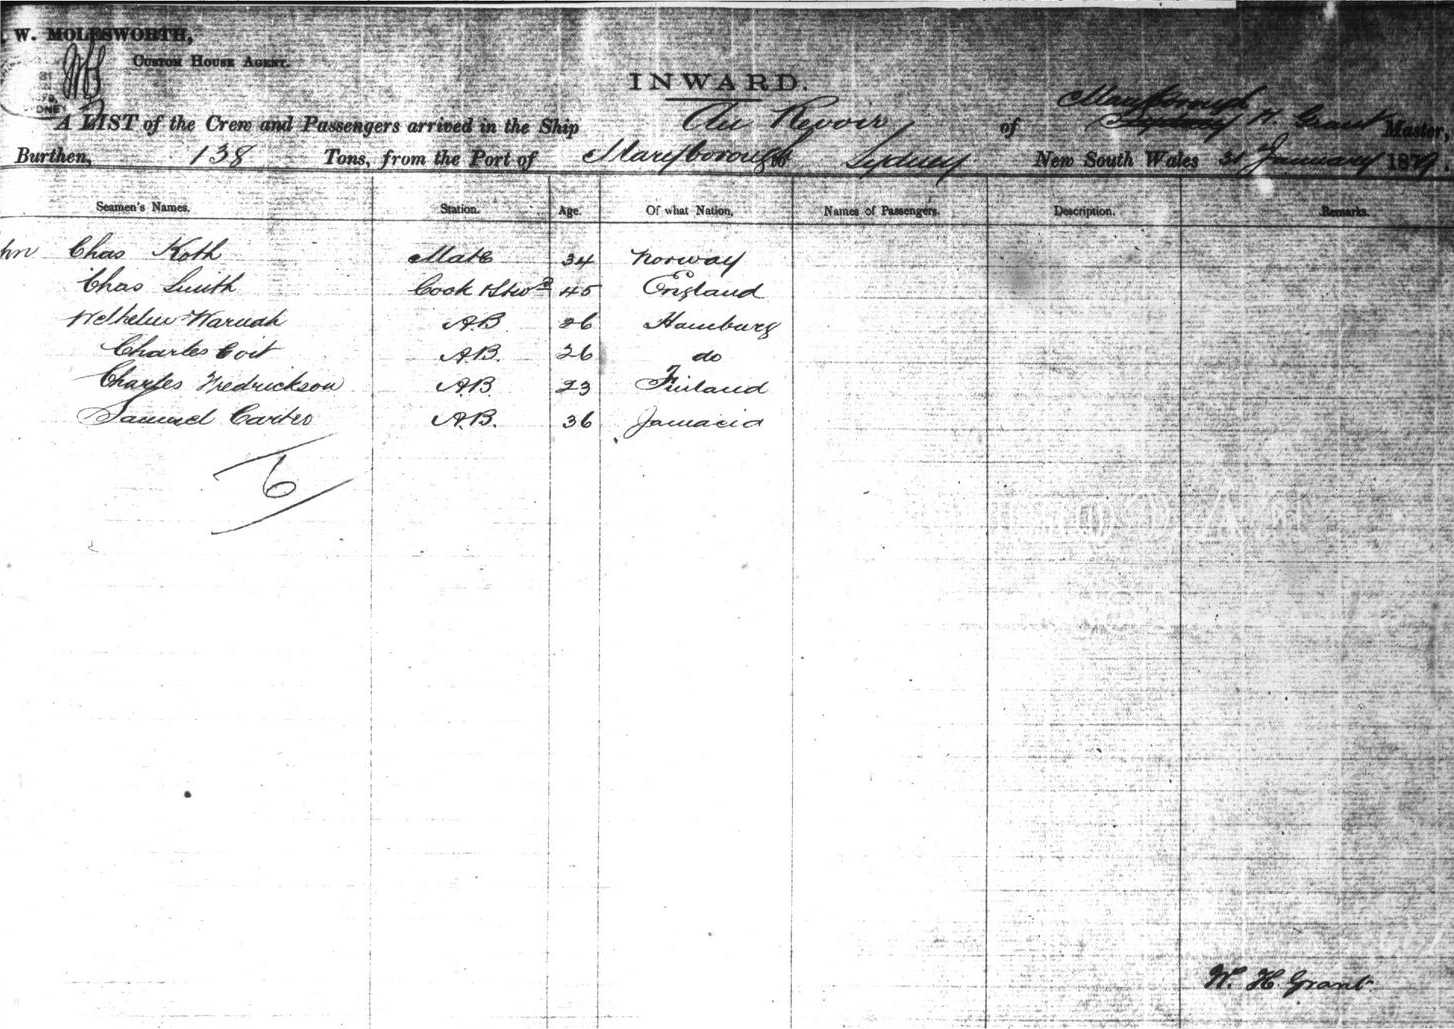 . W. MOLESWORTH,
CUSTOM HOUSE AGENT.
INWARD.
A LIST of the Crew and Passengers arrived in the Ship Au Revoir of Maryborough H. Grant Master,
Burthen, 138 Tons, from the Port of Maryborough to Sydney New South Wales 31 January 1879
Seamen's Names. Station. Age. Of what Nation, Names of Passengers. Description. Remarks.
Chas Koth Mate 34 Norway
Chas Smith Cook & Stwd 45 England
Wilhelm Warnah A.B 26 Hamburg
Charles A.B. 26 do
Charles Fredrickson A.B. 23 Finland
Samuel Carteo A.B. 36 Jamacia
6
W. H. Grant